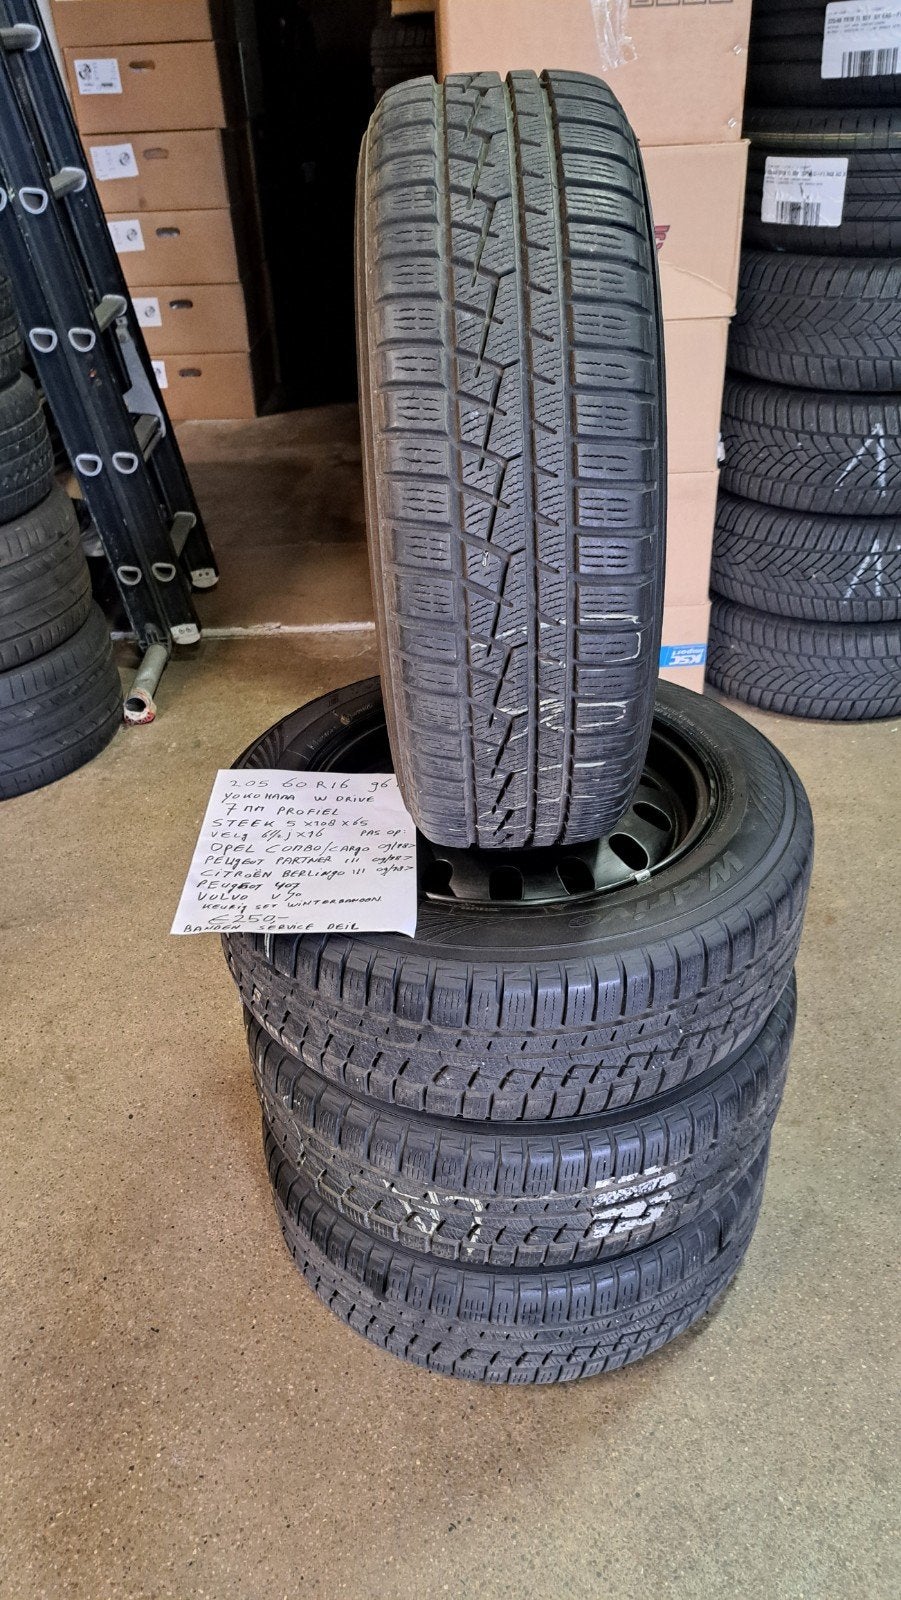 205 60 R16 96
YOKOHAMA W DRIVE
7 MM PROFIEL
STEEK 5 x 108 x 65
VELG 6½ J x 16 PAS OP:
OPEL COMBO/CARGO 09/18>
PEUGEOT PARTNER III 09/18>
CITROËN BERLINGO III 09/18>
PEUGEOT 407
VOLVO V50
KEURIG SET WINTERBANDEN
€250,-
BANDEN SERVICE DEIL
W.drive
KSC
import